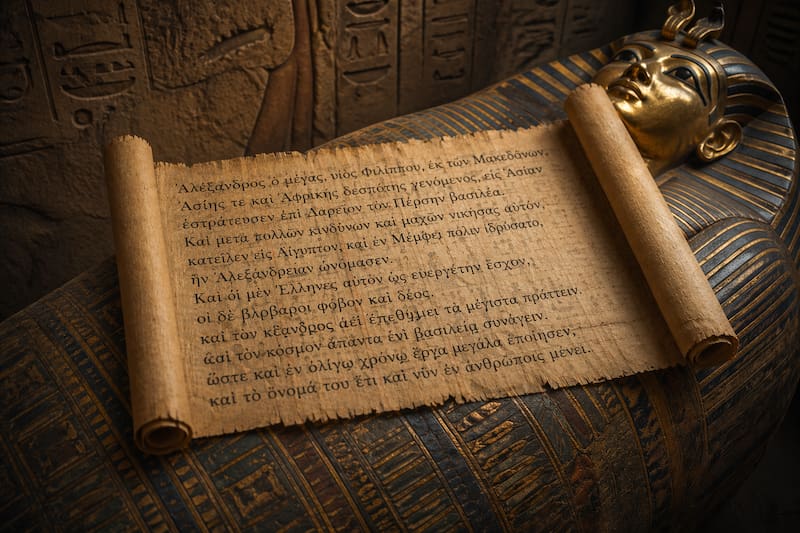 Ἀλέξανδρος ὁ μέγας, υἱὸς Φιλίππου, ἐκ τῶν Μακεδόνων,
Ἀσίης τε καὶ Ἀφρικῆς δεσπότης γενόμενος, εἰς Ἀσίαν
ἐστράτευσεν ἐπὶ Δαρεῖον τὸν Πέρσην βασιλέα.
Καὶ μετὰ πολλῶν κινδύνων καὶ μαχῶν νικήσας αὐτόν,
κατεῖλεν εἰς Αἴγυπτον, καὶ ἐν Μέμφει πόλιν ἱδρύσατο,
ἣν Ἀλεξάνδρειαν ὠνόμασεν.
Καὶ οἱ μὲν Ἕλληνες αὐτὸν ὡς εὐεργέτην ἔσχον,
οἱ δὲ βλρβαροι φόβον καὶ δέος.
καὶ τὸν κἔανδρος ἀεὶ ἐπεθύμει τὰ μέγιστα πράττειν.
ὡσὶ τὸν κόσμον ἅπαντα ἑνὶ βασιλείᾳ συνάγειν.
ὥστε καὶ ἐν ὀλίγῳ χρόνῳ ἔργα μεγάλα ἐποίησεν,
καὶ τὸ ὄνομά του ἔτι καὶ νῦν ἐν ἀνθρώποις μένει.